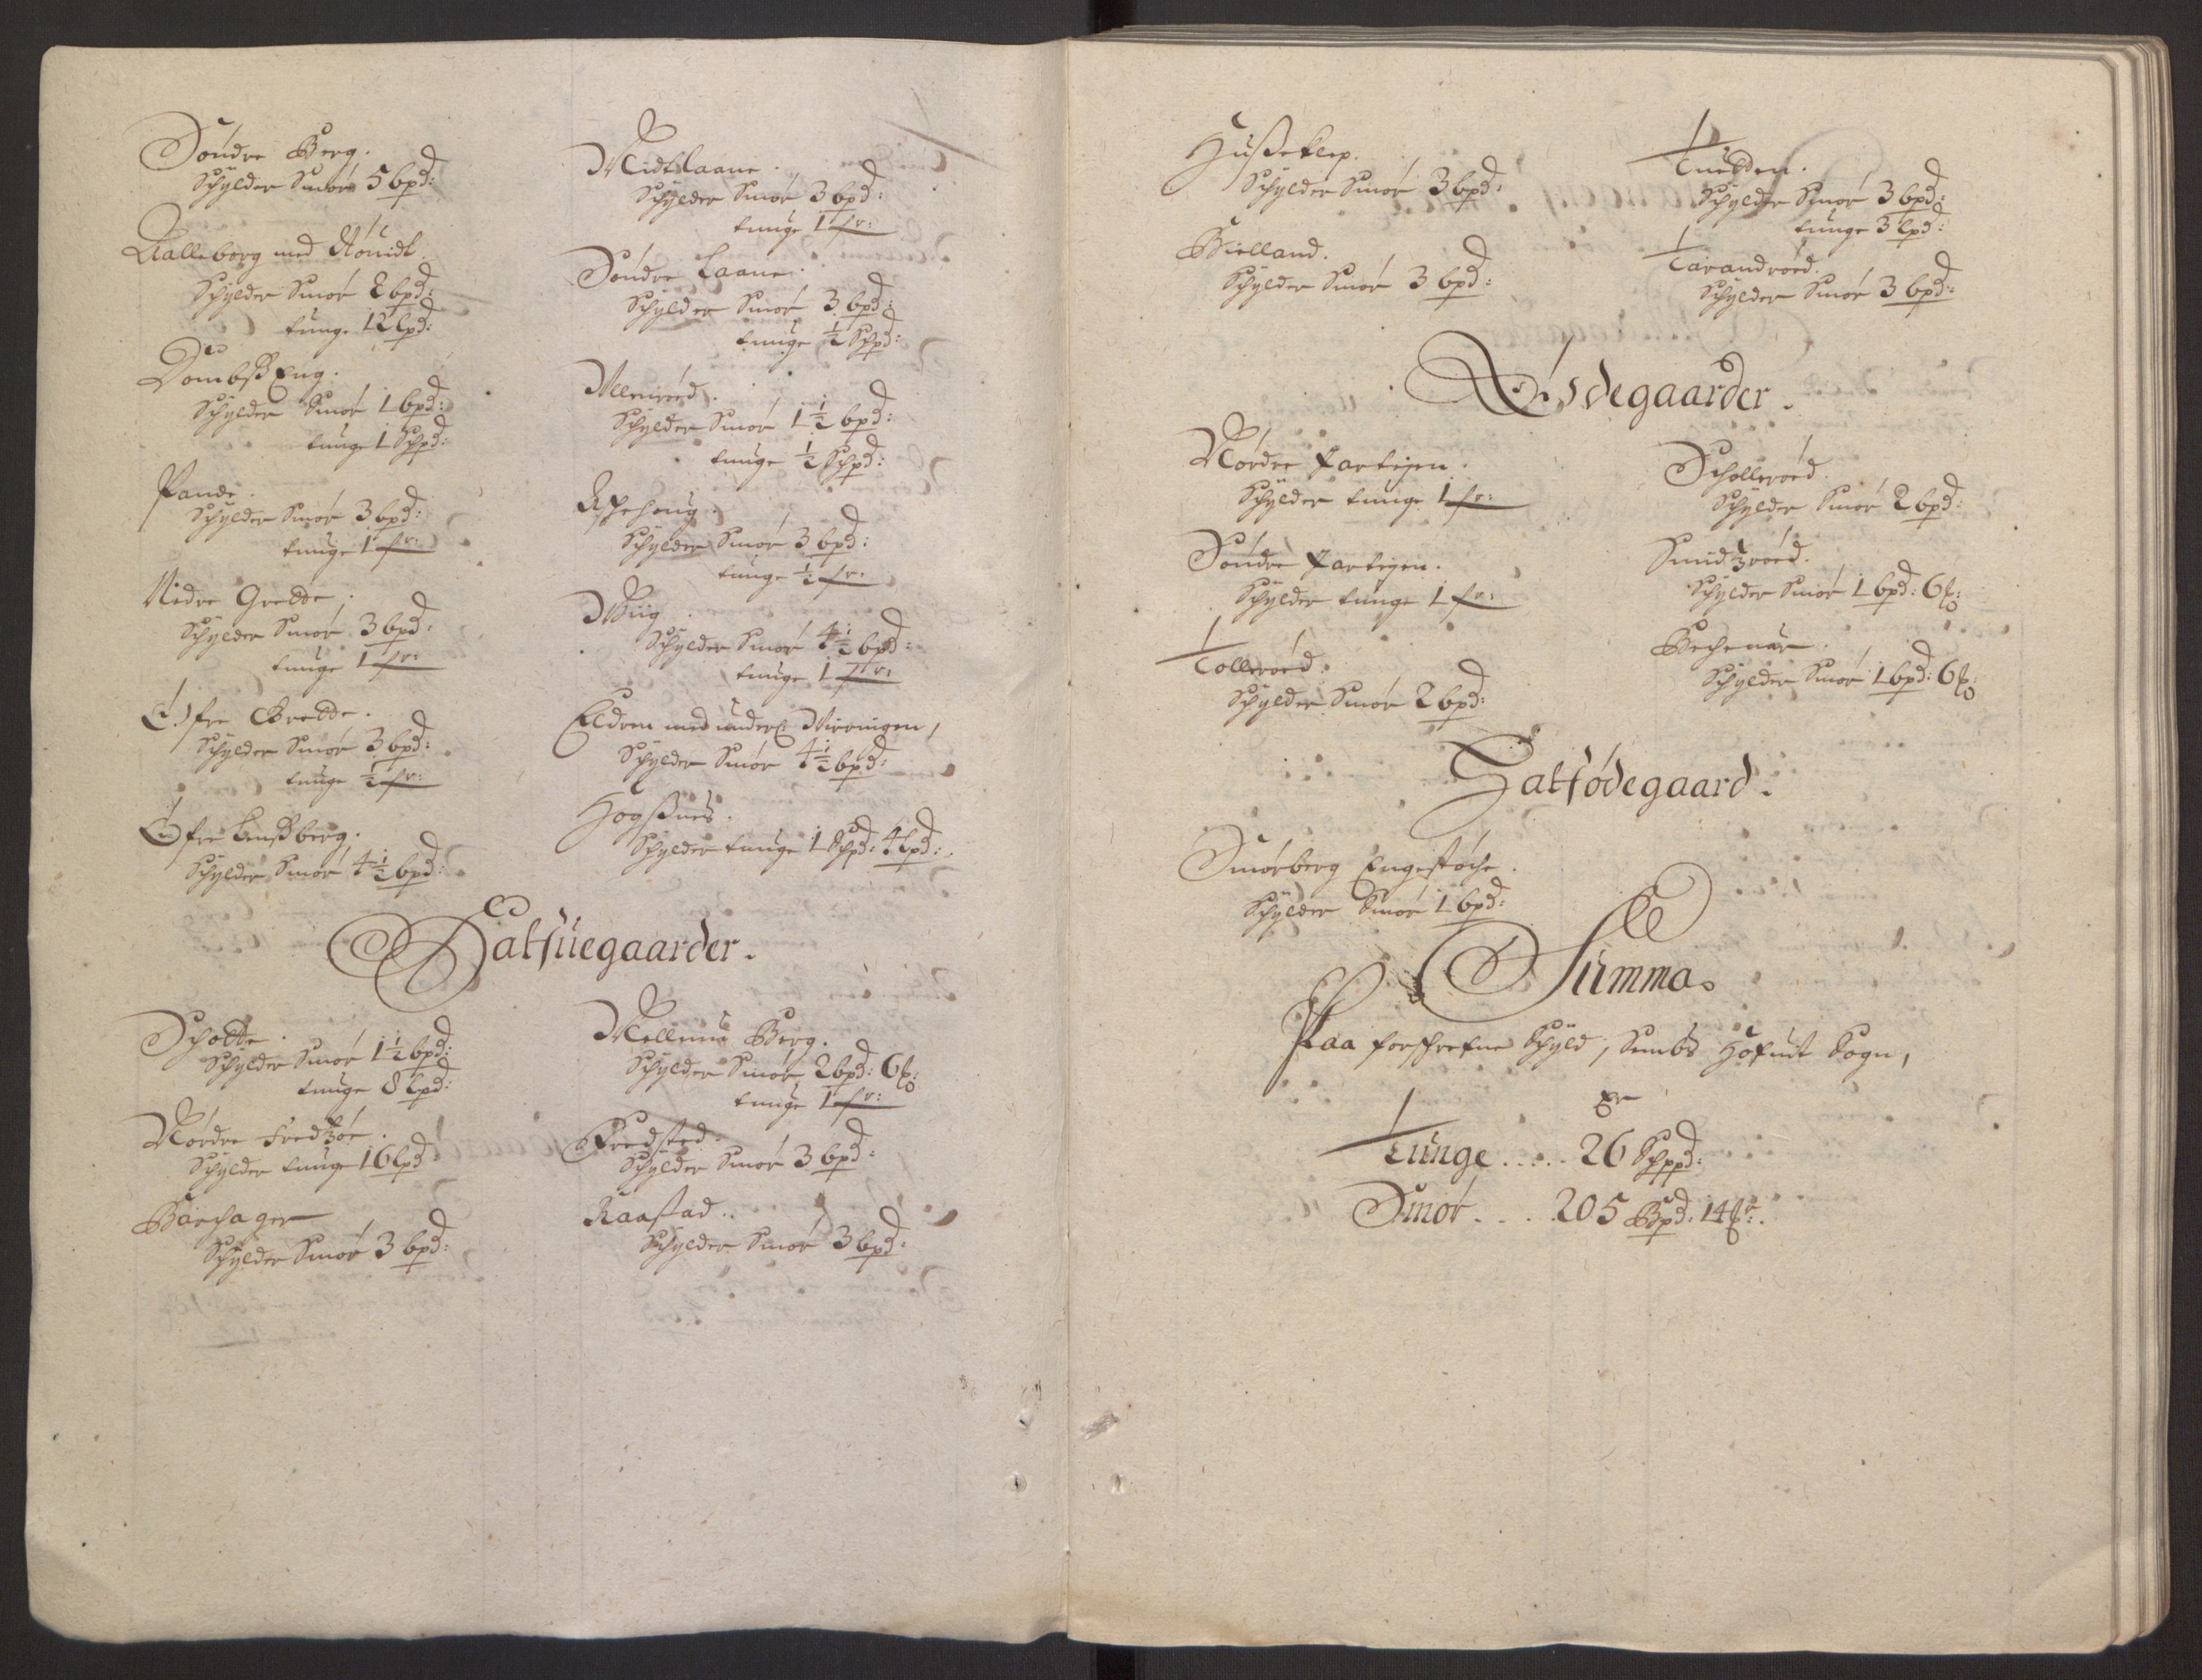 Søndre Berg.
Schylder Smør 5 bpd:
Kalleborg med Röuidt
Schylder Smør 2 bpd:
tunge 12 lpd:
Dombß Eng.
Schylder Smør 1 bpd:
tunge 1 Schpd:
Pande.
Schylder Smør 3 bpd:
tunge 1 fr:
Nedre Gredde.
Schylder Smør 3 bpd:
tunge 1 fr:
Öfre Gredde.
Schylder Smør 3 bpd:
tunge ½ fr:
Öfre Lensßberg.
Schylder Smør 4½ bpd:
Midtlaane.
Schylder Smør 3 bpd:
tunge 1 fr:
Søndre Laane.
Schylder Smør 3 bpd:
tunge ½ Schpd:
Ullenröed.
Schylder Smør 1½ bpd:
tunge ½ Schpd:
Aspehoug.
Schylder Smør 3 bpd:
tunge ½ fr:
Wiig.
Schylder Smør 4½ bpd:
tunge 1 fr:
Eldren med under
Schylder Smør 4½ bpd:
Hogßnes.
Schylder tunge 1 Schpd: 4 lpd:
Halfuegaarder.
Schotte.
Schylder Smør 1½ bpd:
tunge 8 lpd:
Nordre Fredzöe.
Schylder tunge 16 lpd:
Barchager
Schylder Smør 3 bpd:
Mellem Berg.
Schylder Smør 2 bpd: 6 ℔:
tunge 1 fr:
Fredsted.
Schylder Smør 3 bpd:
Raastad.
Schylder Smør 3 bpd:
Hußeklep.
Schylder Smør 3 bpd:
Bielland.
Schylder Smør 3 bpd:
Tuedden.
Schylder Smør 3 bpd:
tunge 3 lpd:
Tarandröed.
Schylder Smør 3 bpd:
Ödegaarder.
Nordre Partegen.
Schylder tunge 1 fr:
Søndre Partegen.
Schylder tunge 1 fr:
Tolleröed.
Schylder Smør 2 bpd:
Scholleröed.
Schylder Smør 2 bpd:
Smidzröed.
Schylder Smør 1 bpd: 6 ℔:
Bechenar.
Schylder Smør 1 bpd: 6 ℔:
Halfödegaard.
Smørberg Engestøche.
Schylder Smør 1 bpd:
Summa
Paa forschrefne Schyld, Sembs Hofuit Sogn,
Er
Tunge ..... 26 Schppd:
Smør .... 205 Bpd: 14 ℔:.